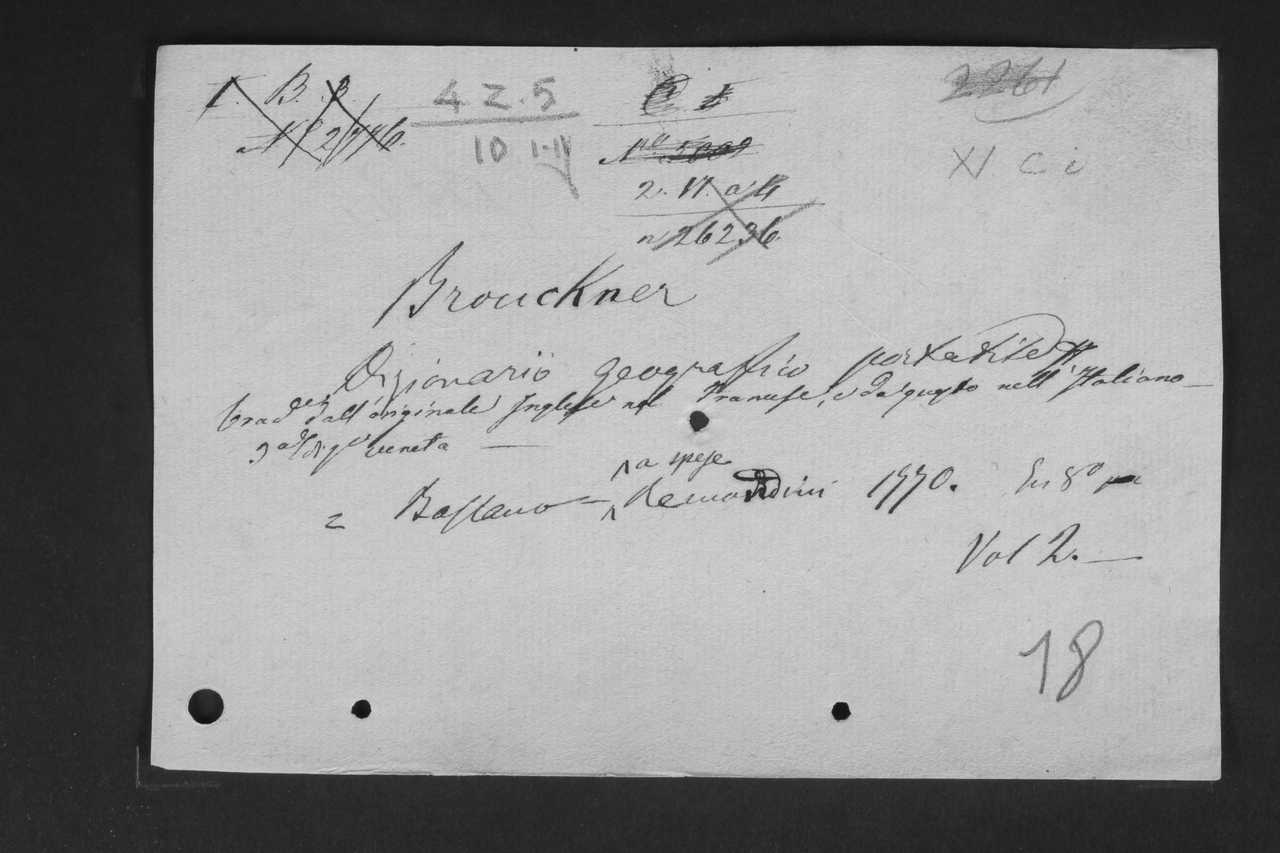 I. B. 3.
Nº 2776.
4. Z. 5
10 I-II
C. 5
Nº
2. 17. a 4
n 26236
2261
XI C i
Brouckner
Dizionario geografico portatile
trad dall'originale Inglese nel Francese, e da questo nell'Italiano
3a Ediz. veneta
= Bassano = a spese Remondini 1770. In 8º
Vol 2.
18